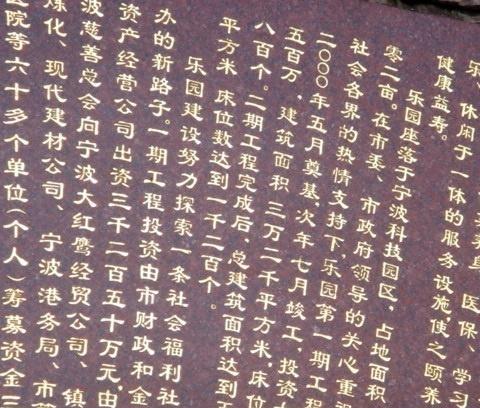 乐、休闲于一体的服务设施,使之颐养
健康益寿。
乐园座落于宁波科技园区,占地面积
零二亩。在市委、市政府领导的关心重视
社会各界的热情支持下,乐园第一期工程
二〇〇〇年五月奠基,次年七月竣工,投资
五百万,建筑面积三万二千平方米,床位
八百个。二期工程完成后,总建筑面积达到
平方米 床位数达到一千二百个。
乐园建设努力探索一条社会福利社
办的新路子。一期工程投资由市财政和
资产经营公司出资三千二百五十万元,由
波慈善总会向宁波大红鹰经贸公司、镇
炼化、现代建材公司、宁波港务局、市
医院等六十多个单位(个人)筹募资金